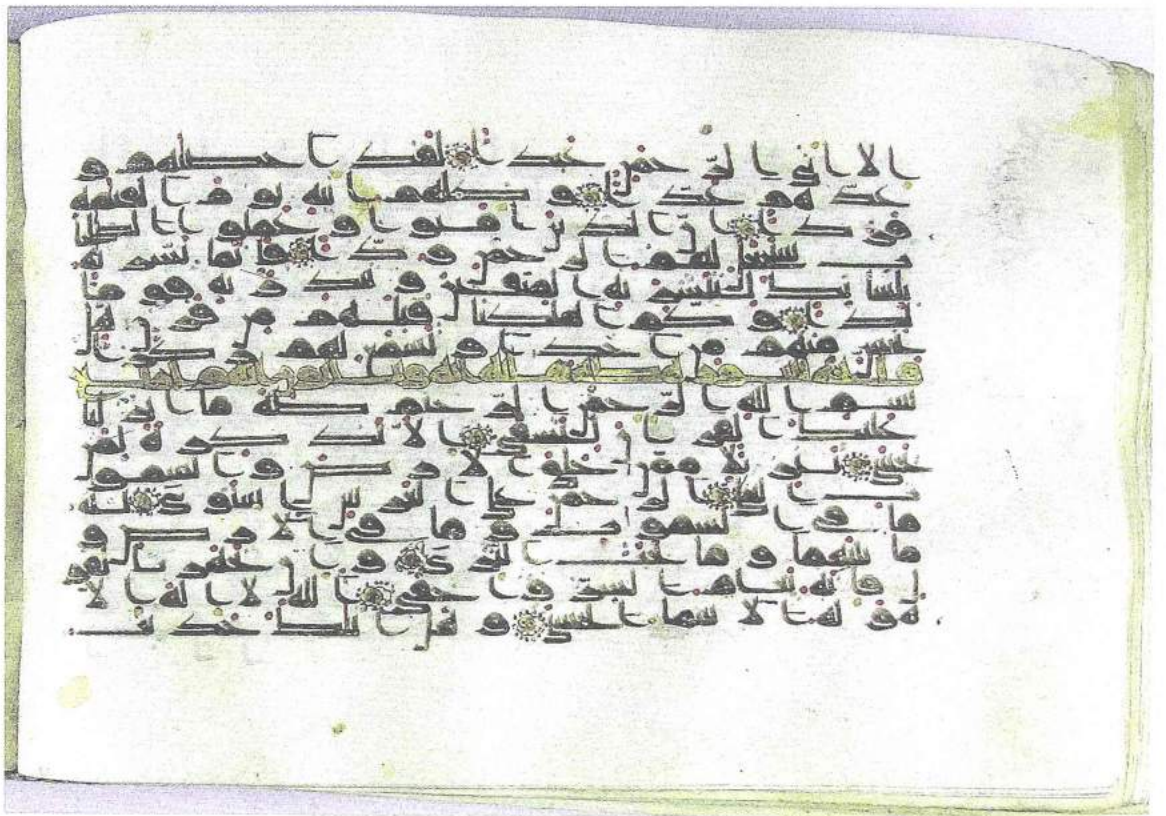 الا اتى الرحمن عبدا لقد احصيهم و
عدهم عدا و كلهم اتيه يوم القيمه
فردا ان الذين امنوا و عملوا الصلح
ت سيجعل لهم الرحمن ودا فانما يسرنه
بلسانك لتبشر به المتقين و تنذر به قوما
لدا و كم اهلكنا قبلهم من قرن هل
تحس منهم من احد او تسمع لهم ركزا
بسم الله الرحمن الرحيم طه ما انز لنا
عليك القران لتشقى الا تذكرة لمن
يخشى تنزيلا ممن خلق الارض و السمو
ت العلى الرحمن على العرش استوى له
ما فى السموت و ما فى الارض و
ما بينهما و ما تحت الثرى و ان تجهر بالقو
ل فانه يعلم السر و اخفى الله لا اله الا
هو له الاسما الحسنى و هل اتيك حديث